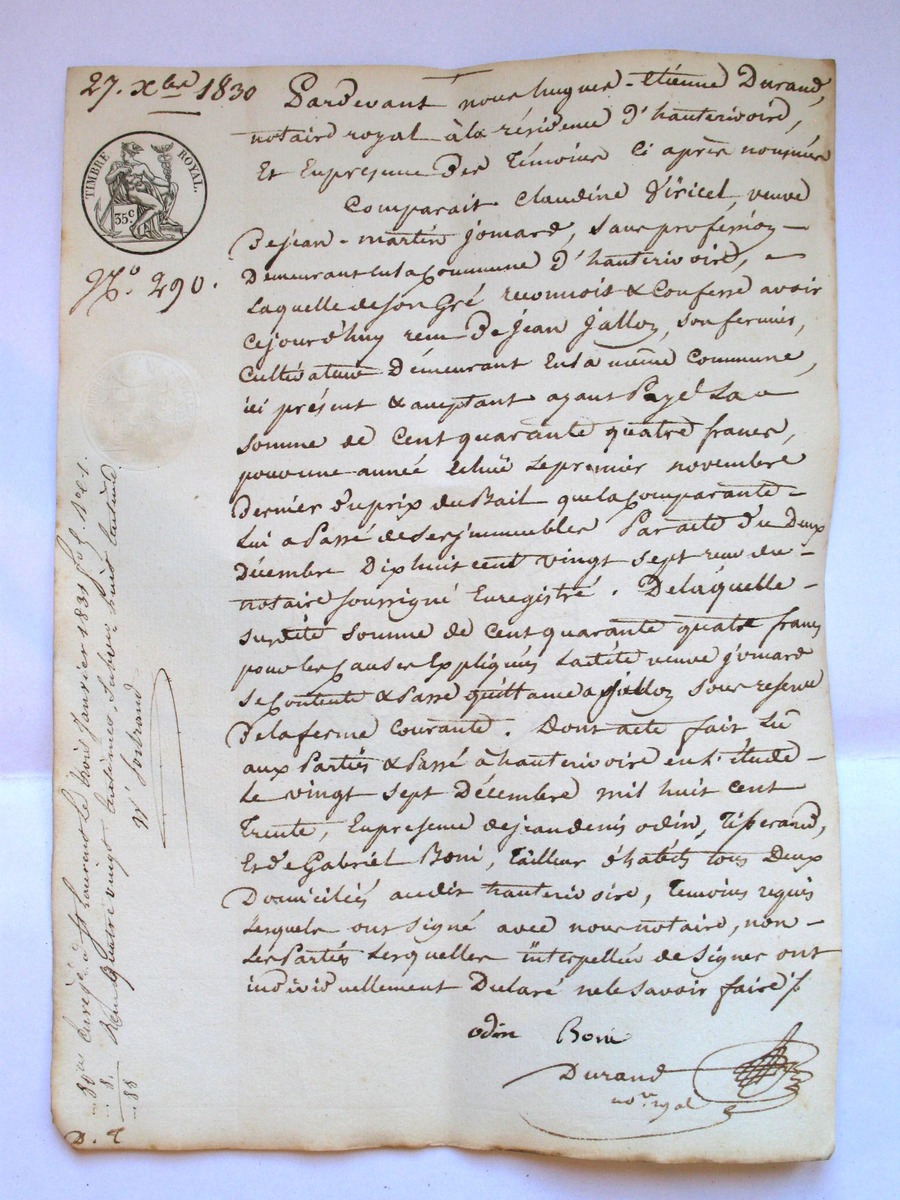 27. Xbre 1830
TIMBRE ROYAL.
35c
No. 290.
Pardevant nous hugues-etienne Durand,
notaire royal à la résidence d'hauterivoire,
Et En presence Des Témoins Ci après nommés
Comparait Claudine Viricel, veuve
De jean-martin jomard, sans profession
Demeurant en la Commune d'hauterivoire,
Laquelle de son Gré reconnoit & Confesse avoir
Cejourd'huy recu De jean jalloz, son fermier,
Cultivateur Demeurant En la même Commune,
ici présent & acceptant ayant Payé La
somme de Cent quarante quatre francs,
pour une année Echuë le premier novembre
Dernier du prix du Bail que la Comparante
Lui a Passé de ses jmmeubles Par acte du Deux
Décembre Dix huit cent vingt sept recu du
notaire soussigné Enregistré. De laquelle
susdite somme de Cent quarante quatre francs
pour les Causes Expliquées Ladite veuve jomard
se Contente & Passe quittance a jalloz sous reserve
De la ferme Courante. Dont acte fait Lû
aux Parties & Passé à hauterivoire en L'étude
Le vingt sept Décembre mil huit cent
Trente, En presence de jean denis odin, Tisserand,
Et de Gabriel Boni, Tailleur d'habits tous Deux
Domiciliés audit hauterivoire, Temoins requis
Lesquels ont signé avec nous notaire, non
Les Parties Lesquelles interpellées de signer ont
individuellement Declaré ne le savoir faire /.
odin Boni
Durand
nore. royal
Laurent le trois janvier 1831
quatre vingt centimes, subvon huit centimes
8.
88
D. q